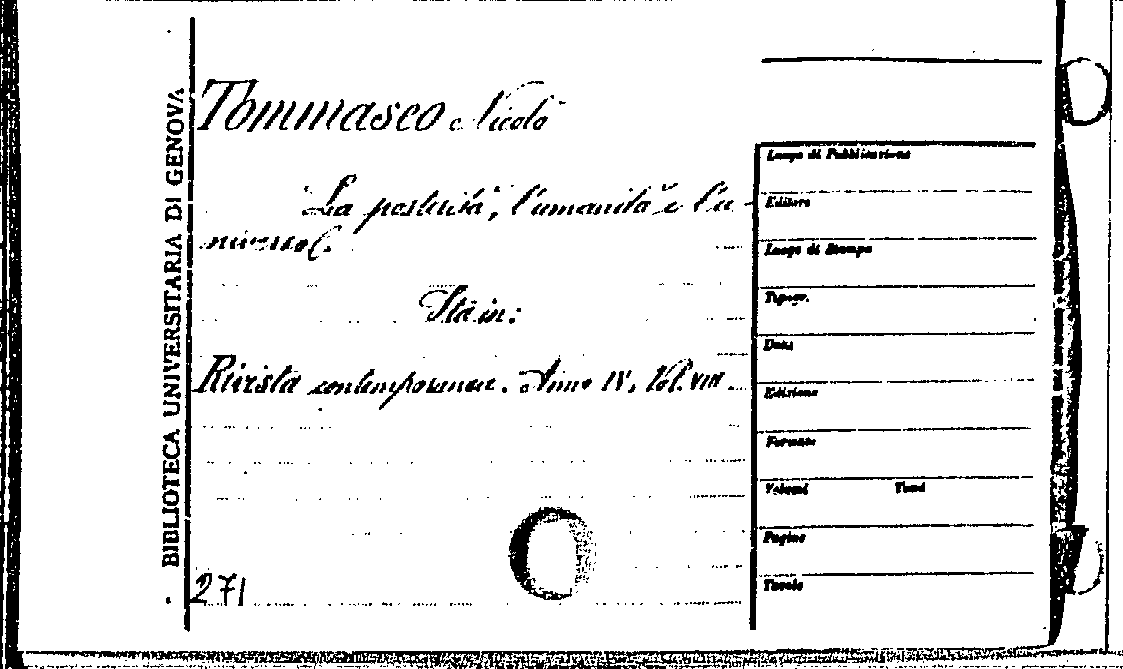 BIBLIOTECA UNIVERSITARIA DI GENOVA
Tommaseo Nicolò
La posterità, l'umanità e l'u-
niverso.
Stà in:
Rivista contemporanea. Anno IV, Vol. VIII.
271
Luogo di Pubblicazione
Editore
Luogo di Stampa
Tipogr.
Data
Edizione
Formato
Volumi Tomi
Pagine
Tavole